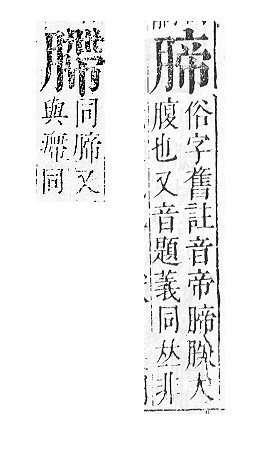 腣
俗字舊註音帝腣胦大
腹也又音題義同𠀤非
䐭
同腣又
與㿃同